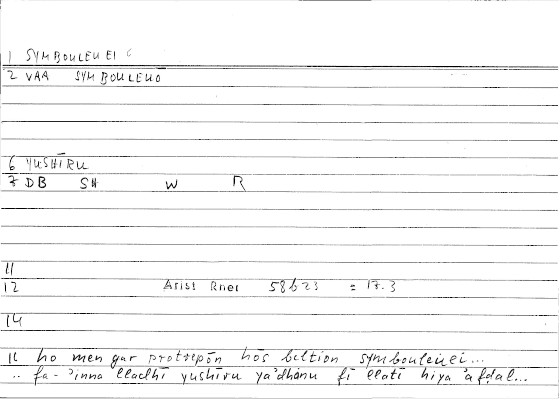 1 SYMBOULEUEI
2 VAA SYMBOULEUŌ
6 YUSHĪRU
7 DB SH W R
11
12 Arist Rhet 58b23 = 17.3
14
16 ho men gar protrepōn hōs beltion symbouleuei...
.. fa-'inna lladhī yushīru ya'dhanu fī llatī hiya 'afḍal...